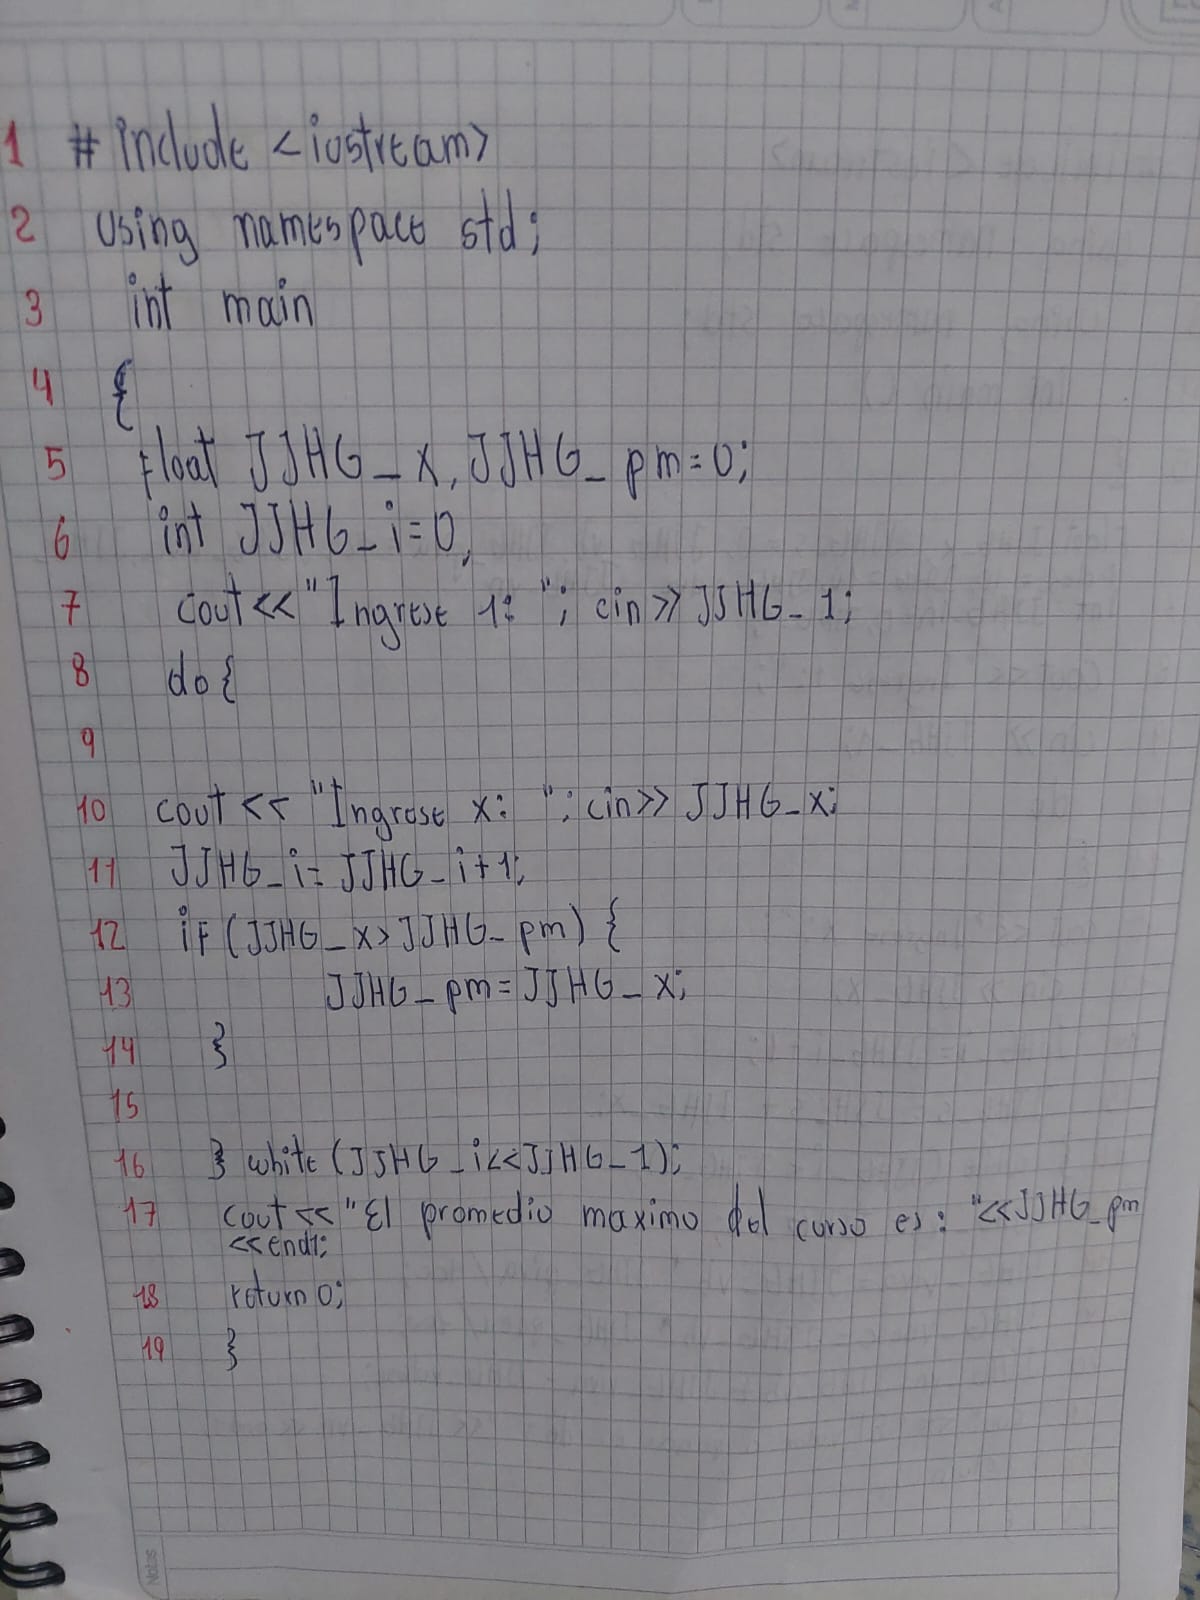 1 # include <iostream>
2 using namespace std;
3 int main
4 {
5 float JJHG_x, JJHG_pm=0;
6 int JJHG_i=0,
7 cout<<"Ingrese 1: "; cin>>JJHG_1;
8 do{
9
10 cout << "Ingrese x: "; cin>> JJHG_x;
11 JJHG_i= JJHG_i+1;
12 if (JJHG_x>JJHG_pm) {
13 JJHG_pm=JJHG_x;
14 }
15
16 } while (JJHG_i<<JJHG_1);
17 cout << "El promedio maximo del curso es: "<<JJHG_pm
<<endl;
18 return 0;
19 }
Notas